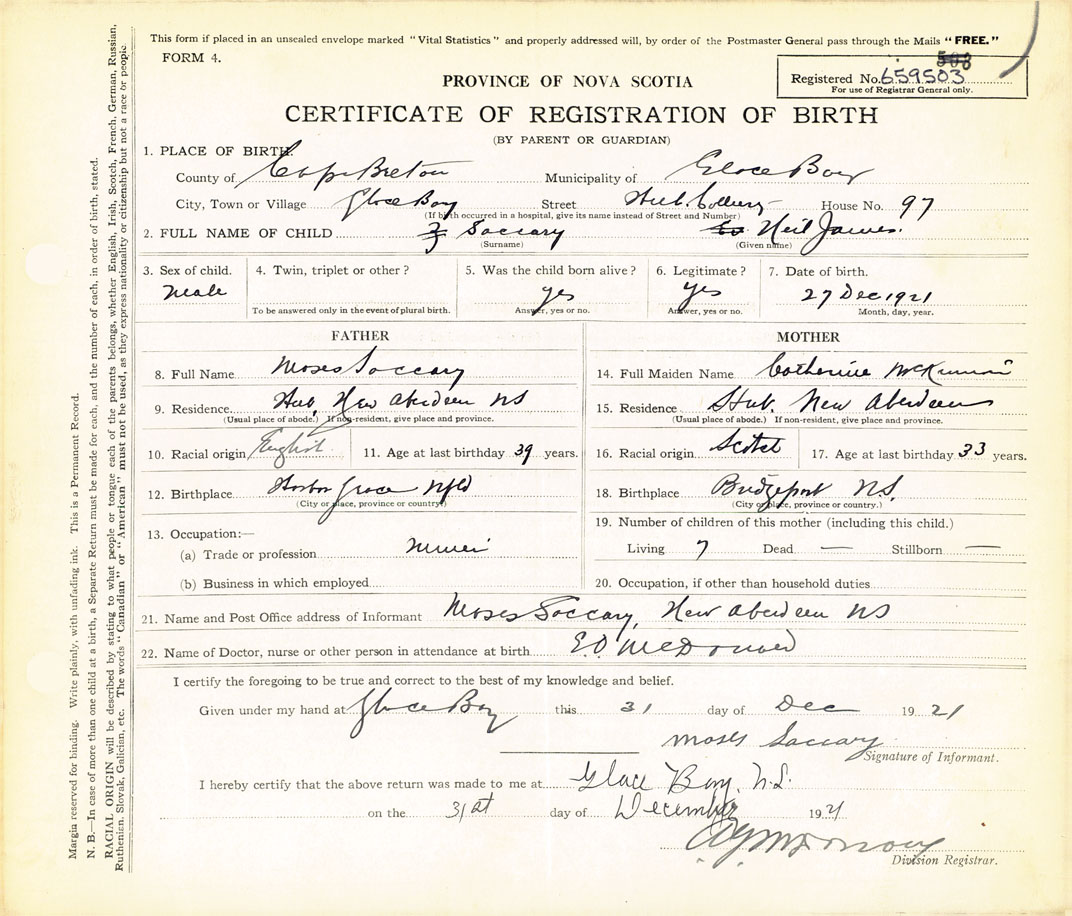 This form if placed in an unsealed envelope marked "Vital Statistics" and properly addressed will, by order of the Postmaster General pass through the Mails "FREE."
FORM 4.
508
PROVINCE OF NOVA SCOTIA
Registered No. 659503
For use of Registrar General only.
CERTIFICATE OF REGISTRATION OF BIRTH
(BY PARENT OR GUARDIAN)
1. PLACE OF BIRTH.
County of Cape Breton Municipality of Glace Bay
City, Town or Village Glace Bay Street Hub Colliery House No. 97
(If birth occurred in a hospital, give its name instead of Street and Number)
2. FULL NAME OF CHILD Soccary Neil James.
(Surname) (Given name)
3. Sex of child. 4. Twin, triplet or other? 5. Was the child born alive? 6. Legitimate? 7. Date of birth.
Male yes yes 27 Dec 1921
To be answered only in the event of plural birth. Answer, yes or no. Answer, yes or no. Month, day, year.
FATHER
8. Full Name Moses Soccary
9. Residence Hub, New Aberdeen NS
(Usual place of abode.) If non-resident, give place and province.
10. Racial origin English 11. Age at last birthday 39 years.
12. Birthplace Harbor Grace Nfld
(City or place, province or country)
13. Occupation:—
(a) Trade or profession Miner
(b) Business in which employed
MOTHER
14. Full Maiden Name Catherine McKinnon
15. Residence Hub, New Aberdeen
(Usual place of abode.) If non-resident, give place and province.
16. Racial origin Scotch 17. Age at last birthday 33 years.
18. Birthplace Bridgeport N.S.
(City or place, province or country.)
19. Number of children of this mother (including this child.)
Living 7 Dead — Stillborn —
20. Occupation, if other than household duties
21. Name and Post Office address of Informant Moses Soccary, New Aberdeen NS
22. Name of Doctor, nurse or other person in attendance at birth E.O. McDonald
I certify the foregoing to be true and correct to the best of my knowledge and belief.
Given under my hand at Glace Bay this 31 day of Dec 1921
Moses Soccary
Signature of Informant.
I hereby certify that the above return was made to me at Glace Bay, N.S.
on the 31st day of December 1921
Division Registrar.
Margin reserved for binding. Write plainly, with unfading ink. This is a Permanent Record.
N. B.—In case of more than one child at a birth, a Separate Return must be made for each, and the number of each, in order of birth, stated.
RACIAL ORIGIN will be described by stating to what people or tongue each of the parents belongs, whether English, Irish, Scotch, French, German, Russian,
Ruthenian, Slovak, Galician, etc. The words "Canadian" or "American" must not be used, as they express nationality or citizenship but not a race or people.